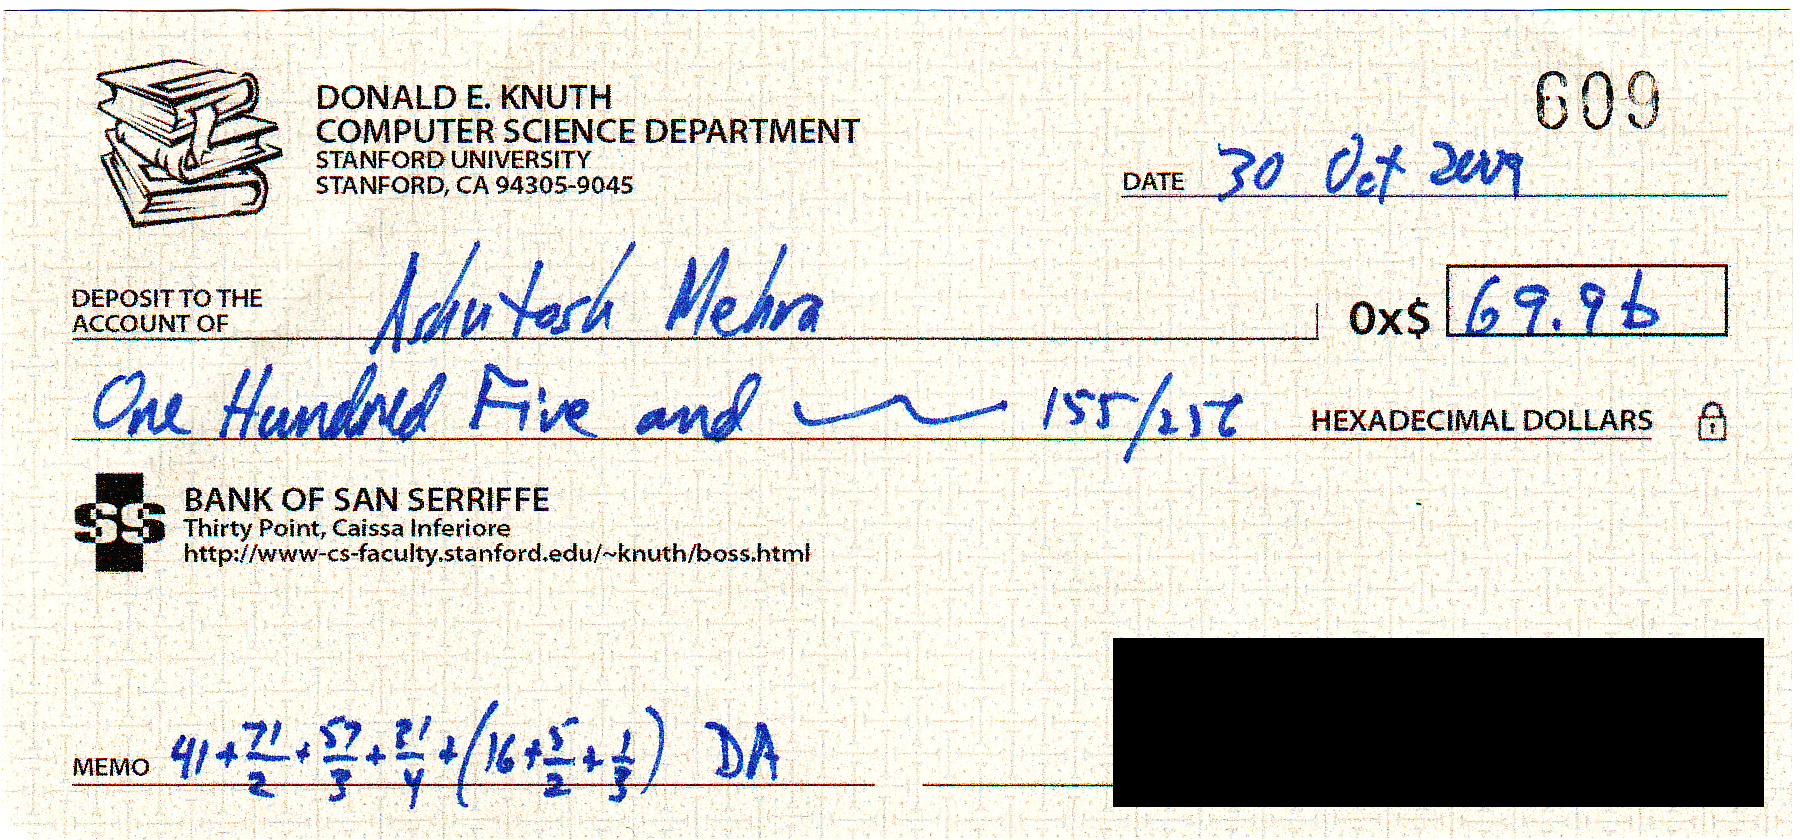 609
DONALD E. KNUTH
COMPUTER SCIENCE DEPARTMENT
STANFORD UNIVERSITY
STANFORD, CA 94305-9045
DATE 30 Oct 2009
DEPOSIT TO THE
ACCOUNT OF Ashutosh Mehra 0x$ 69.9b
One Hundred Five and 155/256 HEXADECIMAL DOLLARS
SS BANK OF SAN SERRIFFE
Thirty Point, Caissa Inferiore
http://www-cs-faculty.stanford.edu/~knuth/boss.html
MEMO 41 + 71/2 + 57/3 + 31/4 + (16 + 5/2 + 1/3) DA